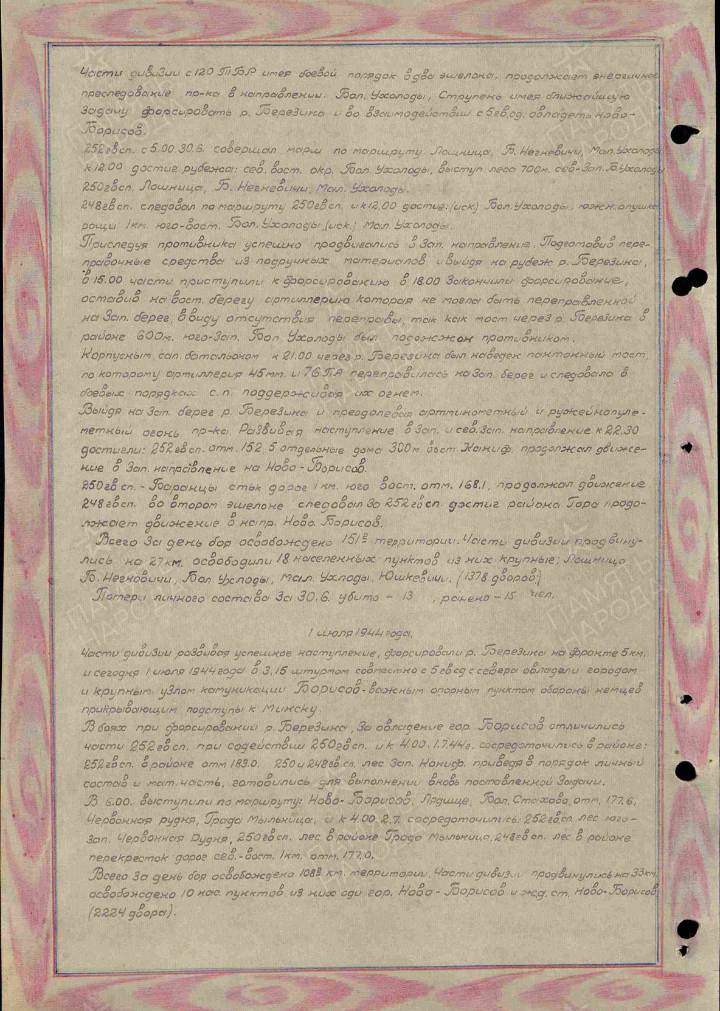 Части дивизии с 120 ТБР имея боевой порядок в два эшелона, продолжает энергичное
преследование пр-ка в направлении: Бол. Ухолоды, Ступень имея ближайшую
задачу форсировать р. Березина и во взаимодействии с 5гв.сд. овладеть Ново-
Борисов.
252гвсп. с 5.00 30.6. совершал марш по маршруту Лошница, Б. Негневичи, Мал. Ухолоды
к 12.00 достиг рубежа: сев. вост. окр. Бол. Ухолоды, выступ леса 700м. сев-Зап. Б. Ухолоды
250гвсп. Лошница, Б. Негневичи, Мал. Ухолоды.
248гвсп. следовал по маршруту 250гвсп. и к 12.00 достиг: (иск) Бол. Ухолоды, южн. опушка
рощи 1км. юго-вост. Бол. Ухолоды, (иск.) Мал Ухолоды.
Приследуя противника успешно продвивались в Зап. направление. Подготовив пере-
правочные средства из подручных материалов и выйдя на рубеж р. Березина,
в 15.00 части приступили к форсированию в 18.00 Закончили форсирование,
оставив на вост. берегу артиллерию которая не могла быть переправленной
на Зап. берег, в виду отсутствия переправы, так как мост через р. Березина в
районе 600м. юго-Зап. Бол. Ухолоды был подожжон противником.
Корпусным сап. батальоном к 21.00 через р. Березина был наведен понтонный мост,
по которому артиллерия 45мм. и 76 ПА переправилась на Зап. берег и следовала в
боевых порядках с.п. поддерживая их огнем.
Выйдя на Зап. берег р. Березина и преодолевая артминометный и ружейнопуле-
метный огонь пр-ка. Развивая наступление в Зап. и сев. Зап. направление к 22.30
достигли: 252гвсп. отм. 152,5 отдельные дома 300м. вост Каниф. продолжал движе-
ние в Зап. направление на Ново-Борисов.
250гвсп. - Баранцы стык дорог 1км. юго вост. отм. 168.1, продолжал движение
248гвсп. во втором эшелоне следовал за 252гвсп. достиг района Гора продо-
лжает движение в напр. Ново-Борисов.
Всего За день боя освобождено 151² территории. Части дивизии продвину-
лись на 27км. освободили 18 населенных пунктов из них крупные; Лошница,
Б. Негновичи, Бол. Ухлоды, Мал. Ухлоды, Юшкевичи. (1378 дворов)
Потери личного состава За 30.6. убито - 13, ранено - 15 чел.
1 июля 1944 года.
Части дивизии развивая успешное наступление, форсировали р. Березина на фронте 5км.
и сегодня 1 июля 1944 года в 3.15 штурмом совместно с 5гвсд с севера овладели городом
и крупным узлом комуникации Борисов-важным опорным пунктом обороны немцев
прикрывающим подступы к Минску.
В боях при форсировании р. Березина, За овладение гор. Борисов отличились
части 252гвсп. при содействии 250гвсп. и к 4.00. 1.7.44г. сосредоточились в районе:
252гвсп. в районе отм 183.0. 250 и 248гвсп. лес Зап. Каниф. приведя в порядок личный
состав и мат. часть, готовились для выполнении вновь поставленной Задачи.
В 6.00. выступили по маршруту: Ново-Борисов, Лядище, Бол. Стахово, отм. 177.6,
Червонная рудня, Града Мыльница, и к 4.00 2.7. сосредоточились: 252гвсп лес юго-
Зап. Червонная Рудня, 250гвсп. лес в районе Града Мыльница, 248гвсп. лес в районе
перекресток дорог сев.-вост. 1км. отм. 177.0.
Всего за день боя освобождено 108² км. территории. Части дивизии продвинулись на 33км.
освобождено 10 нас. пунктов из них гор. Ново-Борисов и жд. ст. Ново-Борисов
(2224 двора).